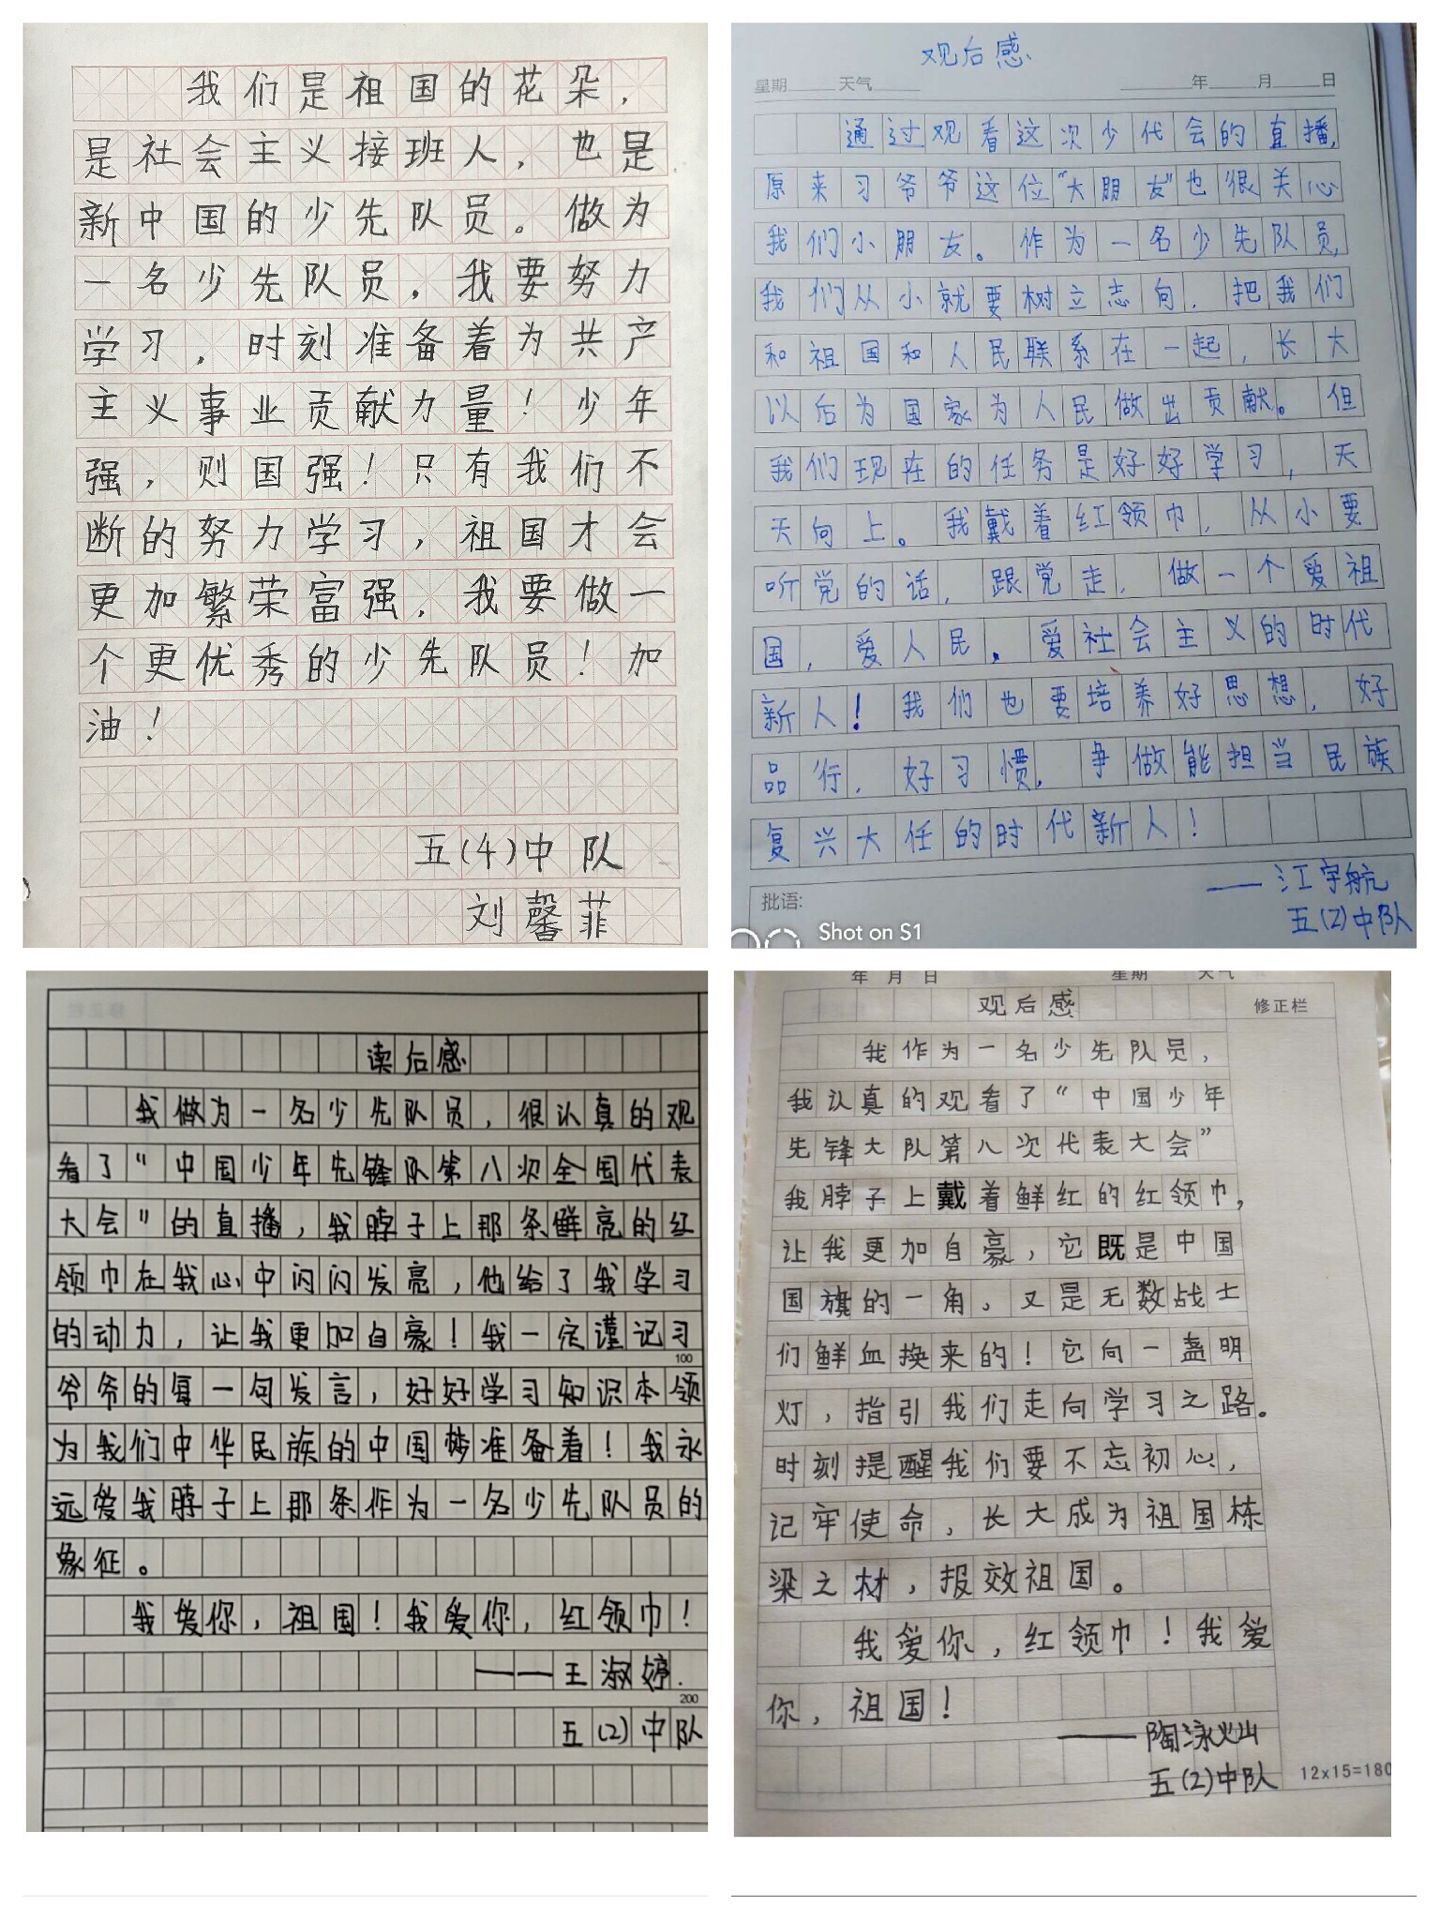 我们是祖国的花朵，
是社会主义接班人，也是
新中国的少先队员。做为
一名少先队员，我要努力
学习，时刻准备着为共产
主义事业贡献力量！少年
强，则国强！只有我们不
断的努力学习，祖国才会
更加繁荣富强，我要做一
个更优秀的少先队员！加
油！
五(4)中队
刘馨菲
观后感
星期 天气 年 月 日
通过观看这次少代会的直播，
原来习爷爷这位“大朋友”也很关心
我们小朋友。作为一名少先队员，
我们从小就要树立志向，把我们
和祖国和人民联系在一起，长大
以后为国家为人民做出贡献。但
我们现在的任务是好好学习，天
天向上。我戴着红领巾，从小要
听党的话，跟党走，做一个爱祖
国，爱人民，爱社会主义的时代
新人！我们也要培养好思想，好
品行，好习惯，争做能担当民族
复兴大任的时代新人！
——江宇航
五(2)中队
批语:
Shot on S1
读后感
我做为一名少先队员，很认真的观
看了“中国少年先锋队第八次全国代表
大会”的直播，我脖子上那条鲜亮的红
领巾在我心中闪闪发亮，他给了我学习
的动力，让我更加自豪！我一定谨记习
100
爷爷的每一句发言，好好学习知识本领
为我们中华民族的中国梦准备着！我永
远爱我脖子上那条作为一名少先队员的
象征。
我爱你，祖国！我爱你，红领巾！
——王淑婷.
200
五(2)中队
年 月 日 星期 天气
观后感 修正栏
我作为一名少先队员，
我认真的观看了“中国少年
先锋大队第八次代表大会”
我脖子上戴着鲜红的红领巾，
让我更加自豪，它既是中国
国旗的一角，又是无数战士
们鲜血换来的！它向一盏明
灯，指引我们走向学习之路。
时刻提醒我们要不忘初心，
记牢使命，长大成为祖国栋
梁之材，报效祖国。
我爱你，红领巾！我爱
你，祖国！
——陶泳火山
五(2)中队
12×15=180